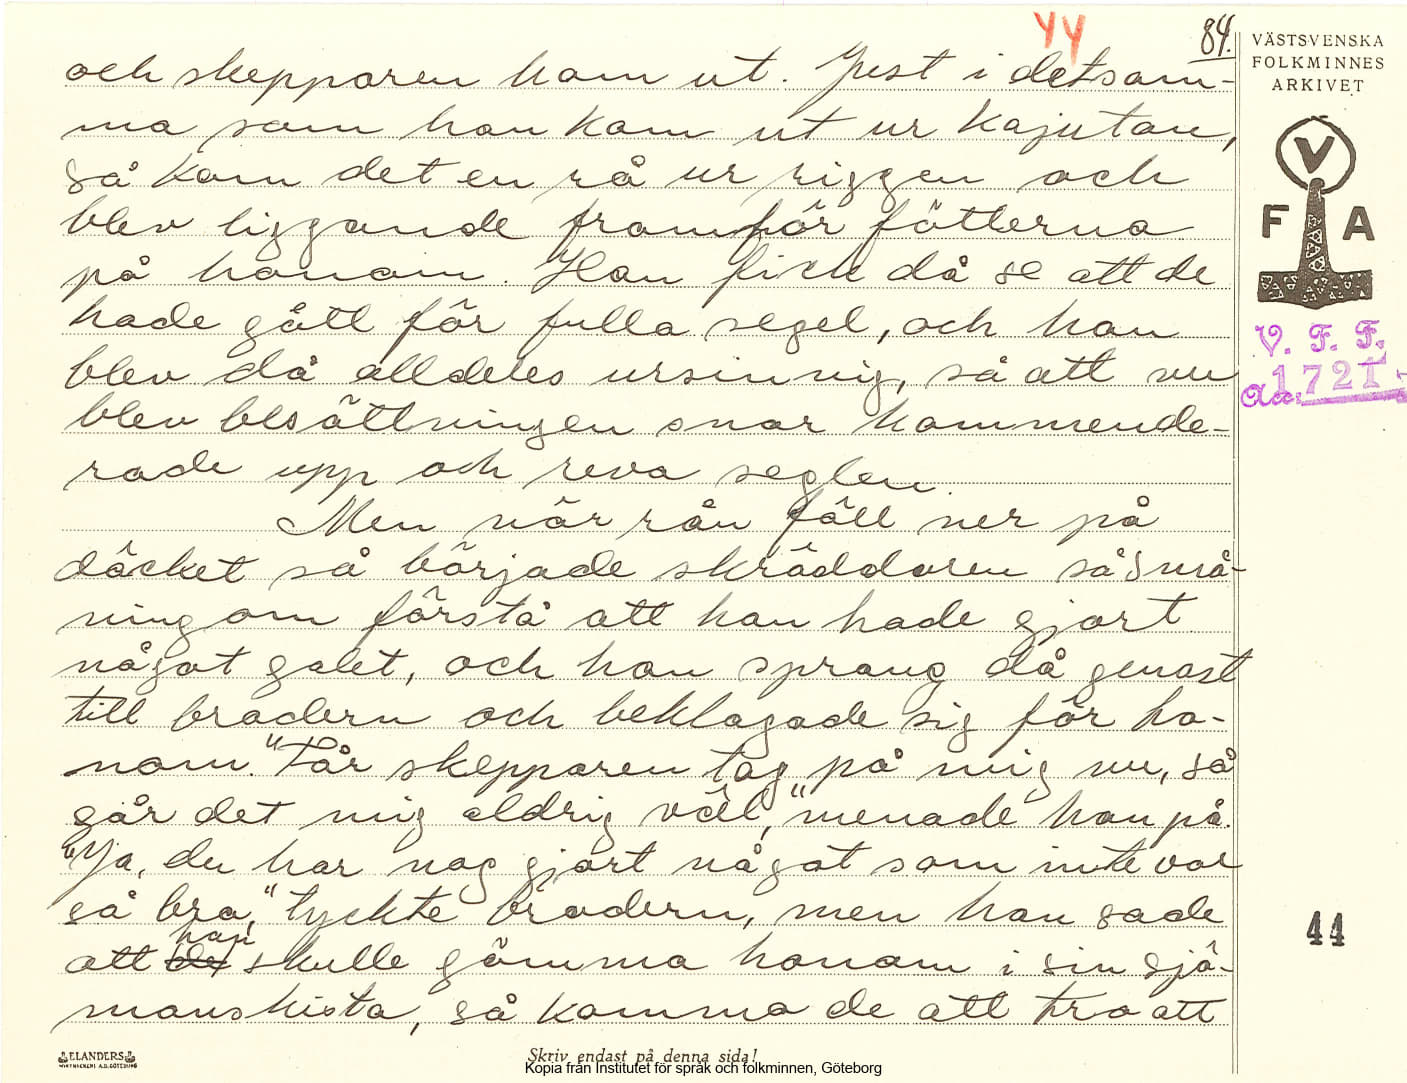 44
84.
och skepparen kom ut. Just i detsam-
ma som han kom ut ur kajutan,
så kom det en rå ur riggen och
blev liggande framför fötterna
på honom. Han fick då se att de
hade gått för fulla segel, och han
blev då alldeles ursinnig, så att nu
blev besättningen snar kommende-
rade upp och reva seglen.
Men när rån föll ner på
däcket så började skräddaren såsmå-
ningom förstå att han hade gjort
något galet, och han sprang då genast
till brodern och beklagade sig för ho-
nom. "Får skepparen tag på mig nu, så
går det mig aldrig väl," menade han på.
"Ja, du har nog gjort något som inte var
så bra," tyckte brodern, men han sade
att de han skulle gömma honom i sin sjö-
manskista, så komma de att tro att
VÄSTSVENSKA
FOLKMINNES
ARKIVET
V
F A
V. F. F.
Acc. 1721
44
ELANDERS
Skriv endast på denna sida!
Kopia från Institutet för språk och folkminnen, Göteborg